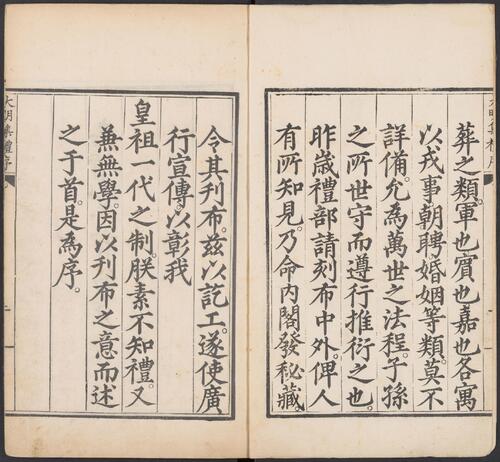 葬之類。軍也賓也嘉也各寓
以戎事朝聘婚姻等類。莫不
詳備。允為萬世之法程。子孫
之所世守而遵行推衍之也。
昨歲禮部請刻布中外。俾人
有所知見。乃命內閣發秘藏
令其刋布。茲以訖工。遂使廣
行宣傳。以彰我
皇祖一代之制。朕素不知禮。又
兼無學。因以刋布之意而述
之于首。是為序。
大明集禮序